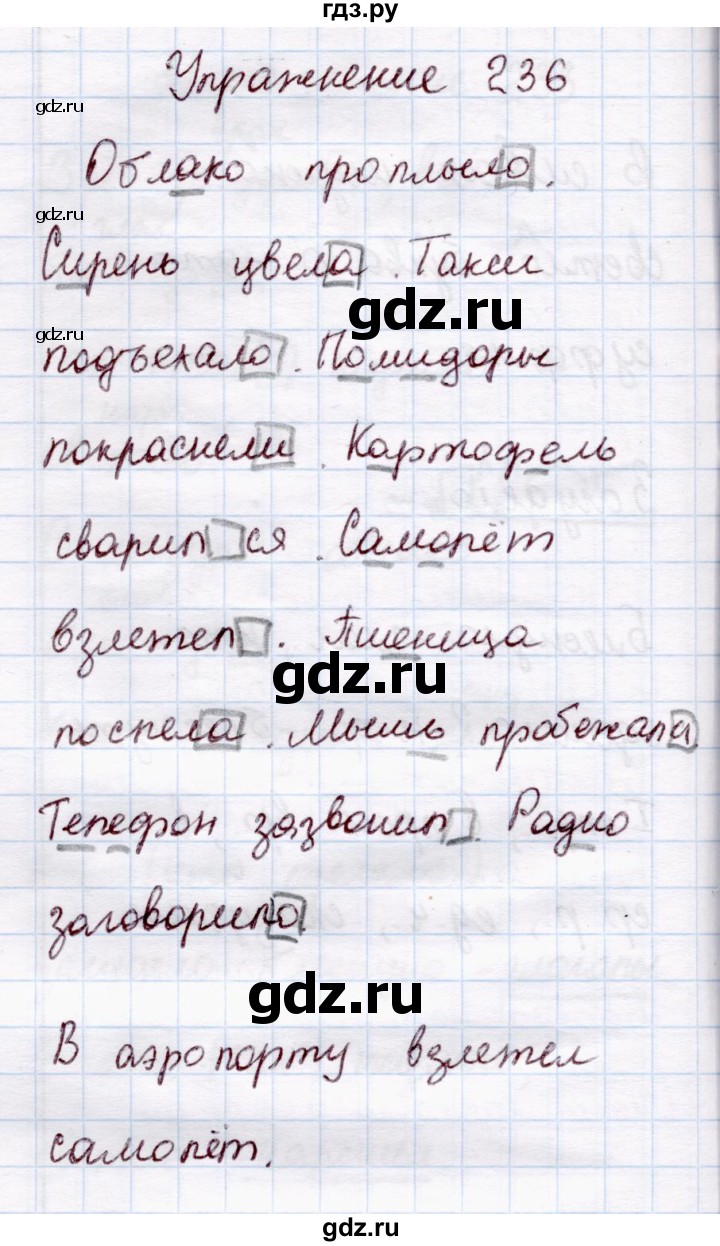 гдз.ру
Упражнение 236
gdz.ru
Облако проплыло.
gdz.ru
Сирень цвела. Такси
gdz.ru
gdz.ru
подъехало. Помидоры
покраснели. Картофель
gdz.ru
сварился. Самолёт
взлетел. Пшеница
gdz.ru
поспела. Мышь пробежала.
Телефон зазвонил. Радио
заговорило.
gdz.ru
В аэропорту взлетел
самолёт.
gdz.ru